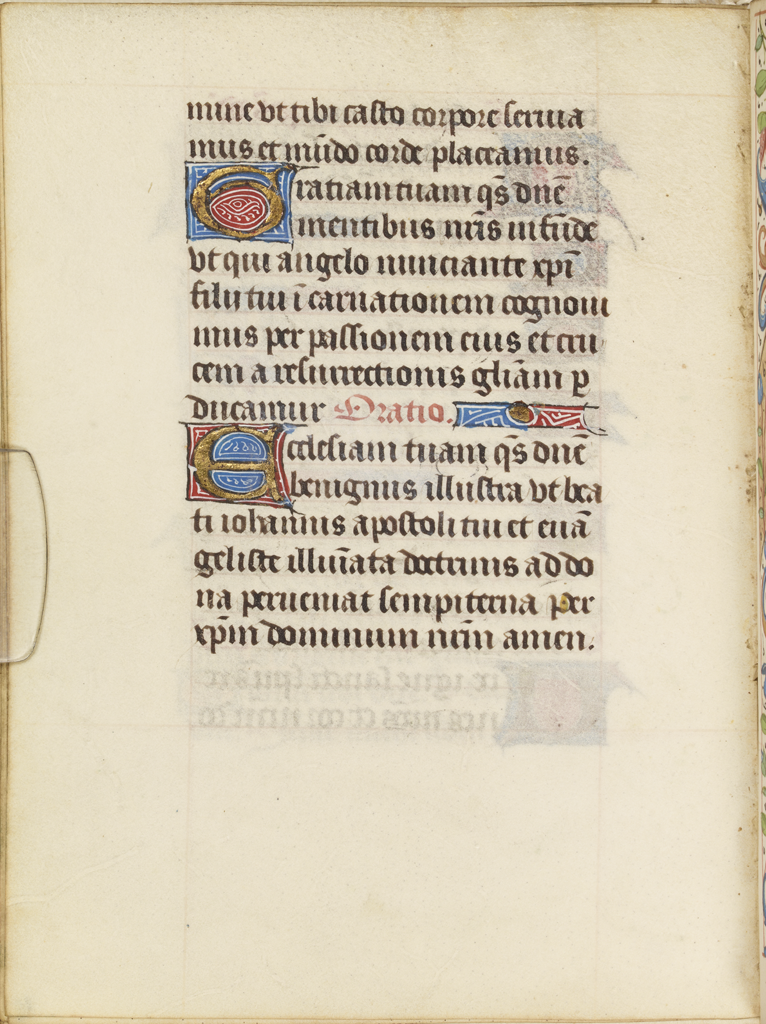 mine vt tibi casto corpore seruia
mus et mūdo corde placeamus.
Gratiam tuam qs̄ dnē
mentibus nr̄is infūde
vt qui angelo nunciante xp̄i
filij tui īcarnationem cognoui
mus per passionem eius et cru
cem a resurrectionis gliām ꝑ
ducamur Oratio.
Ecclesiam tuam qs̄ dnē
benignus illustra vt bea
ti iohannis apostoli tui et euā
geliste illuīata doctrinis ad do
na perueniat sempiterna per
xp̄m dominum nr̄m amen.